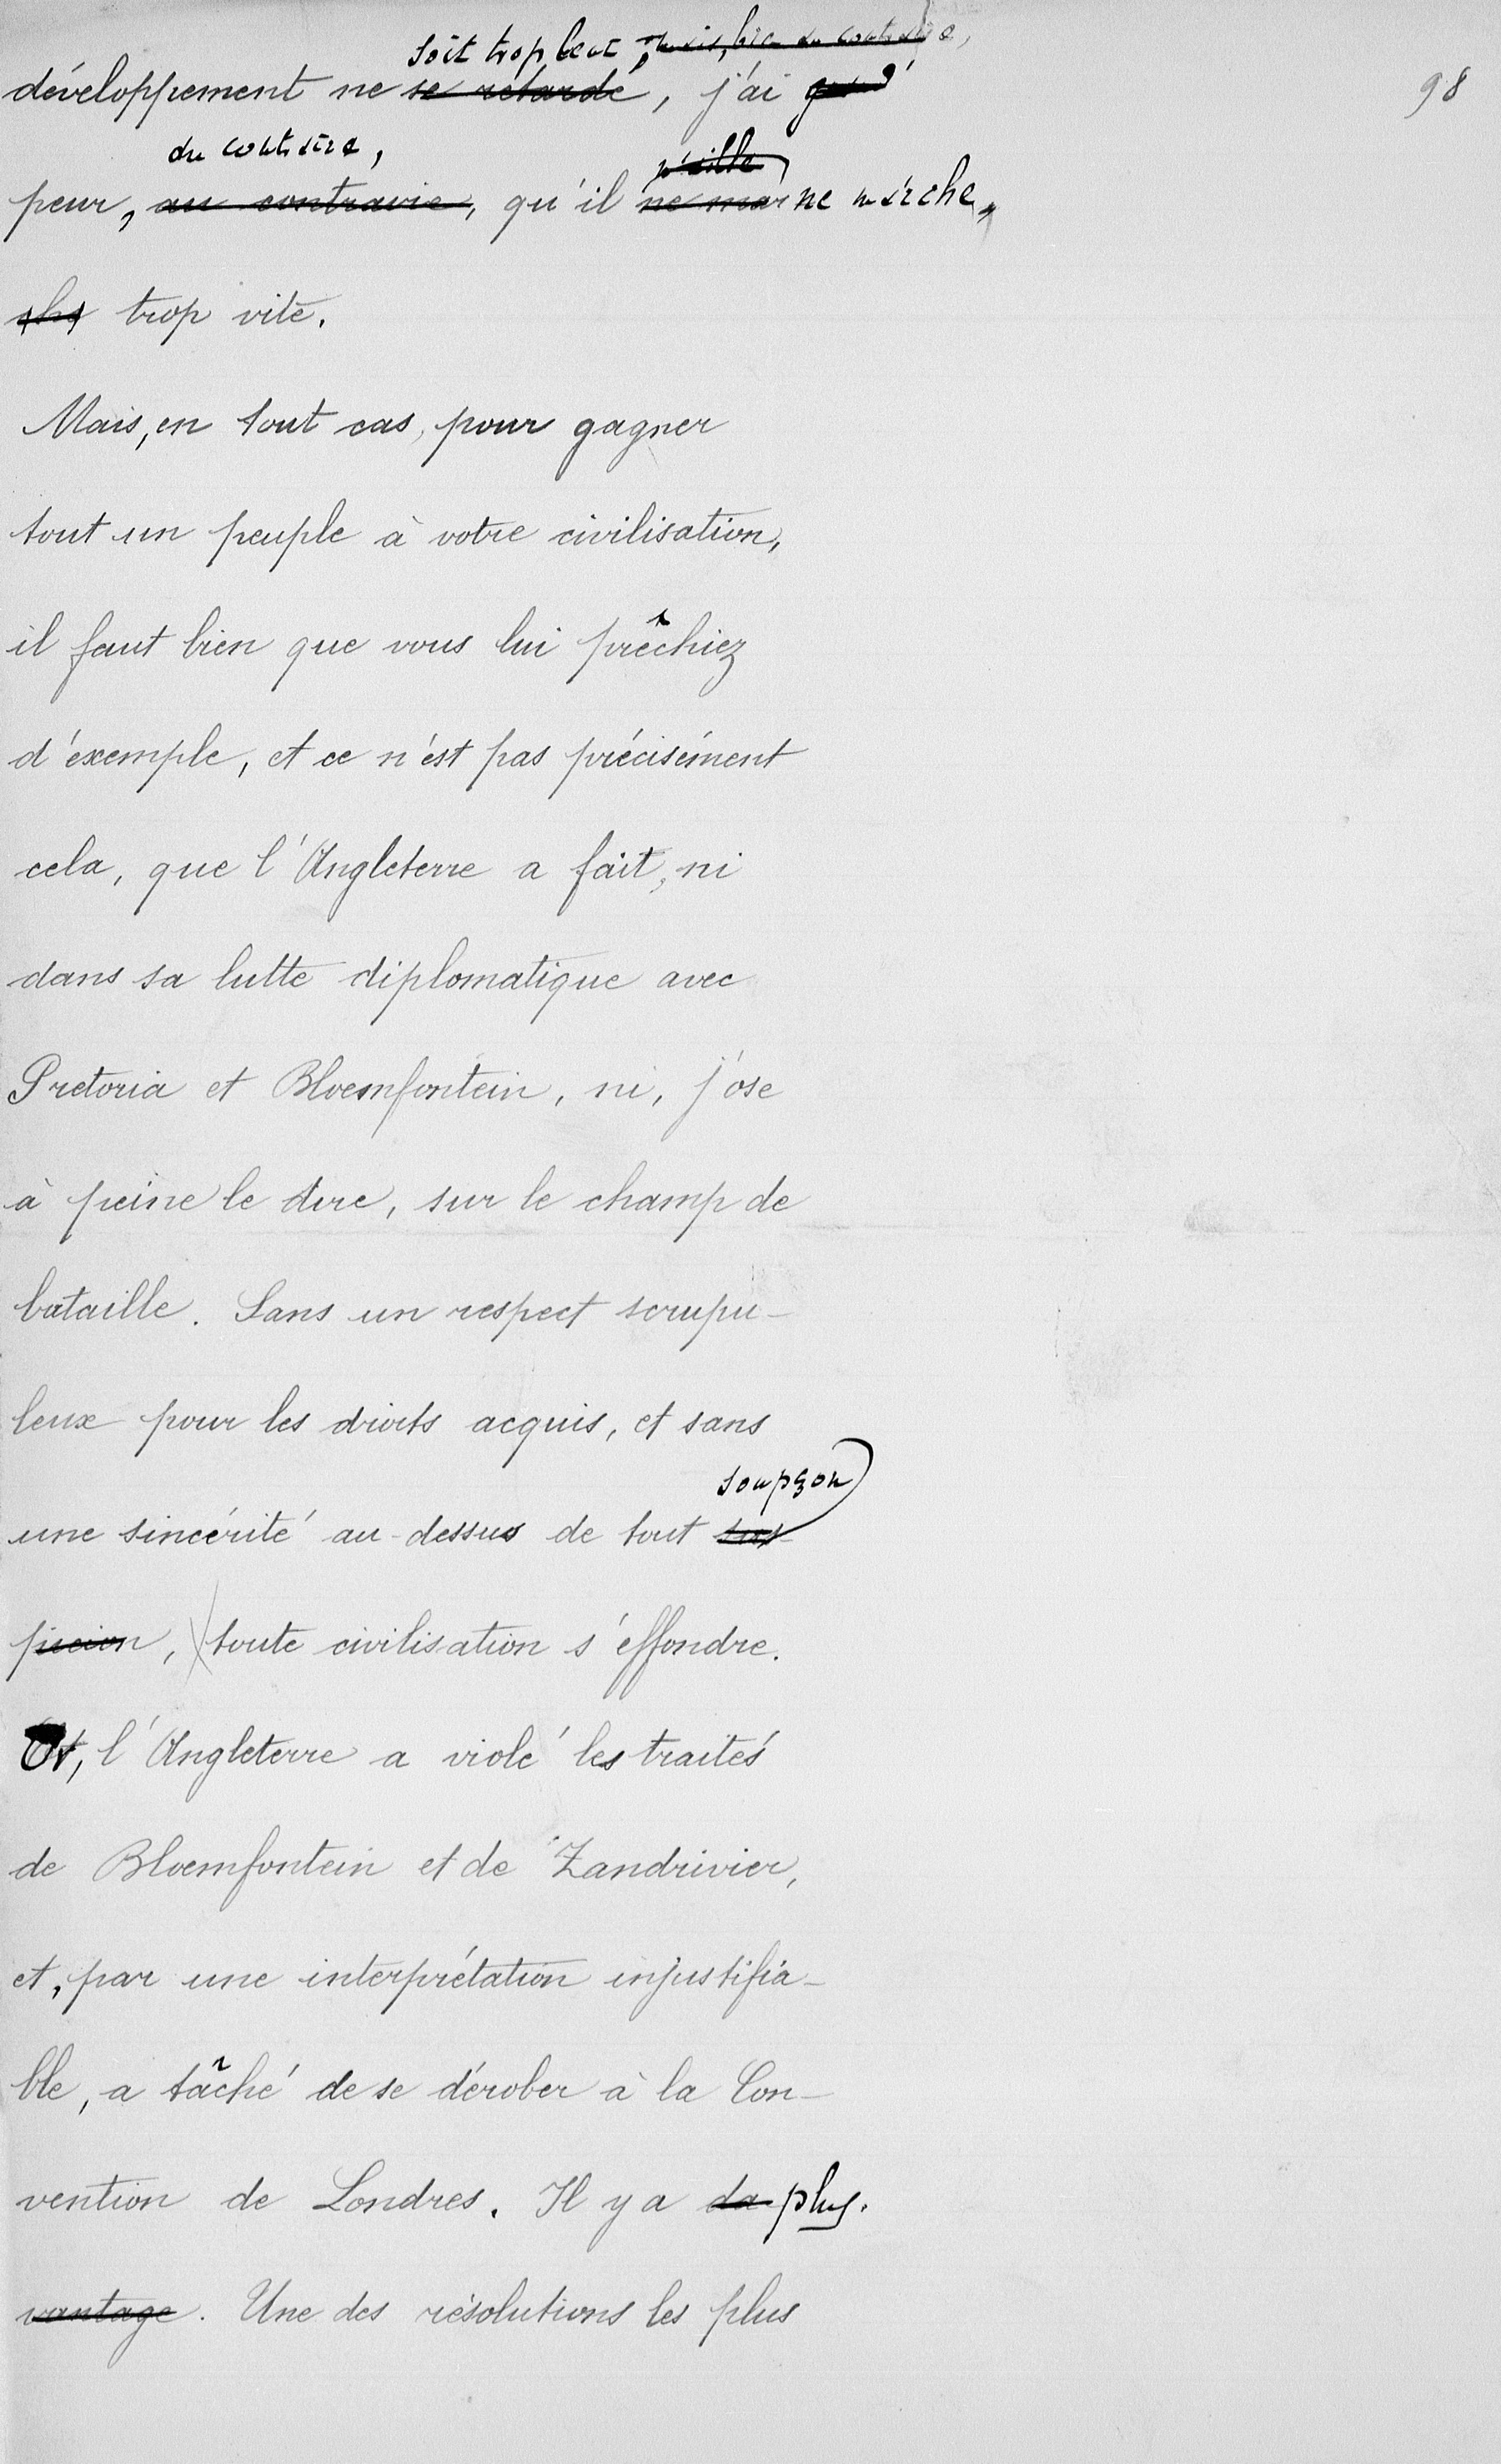 soit trop lent, mais, bien au contraire,
développement ne se retarde, j'ai
98
au contraire,
n'aille
peur, au contraire, qu'il ne mar ne marche,
che trop vite.
Mais, en tout cas, pour gagner
tout un peuple à votre civilisation,
il faut bien que vous lui prêchiez
d'exemple, et ce n'est pas précisément
cela, que l'Angleterre a fait, ni
dans sa lutte diplomatique avec
Pretoria et Bloemfontein, ni, j'ose
à peine le dire, sur le champ de
bataille. Sans un respect scrupu-
leux pour les droits acquis, et sans
soupçon
une sincérité au-dessus de tout sus-
picion, toute civilisation s'effondre.
Or, l'Angleterre a violé les traités
de Bloemfontein et de Zandrivier,
et, par une interprétation injustifia-
ble, a tâché de se dérober à la Con-
vention de Londres. Il y a da- plus.
vantage. Une des résolutions les plus